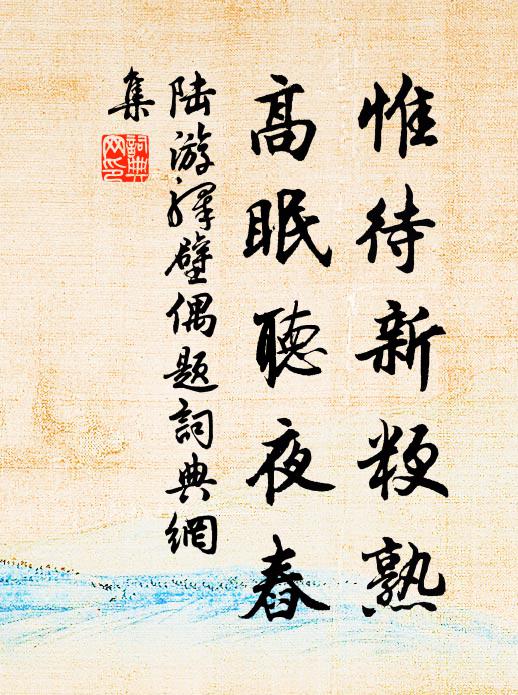 惟待新粳熟
高眠聽夜舂
陸游驛壁偶題詞典網
集
詞典
网印